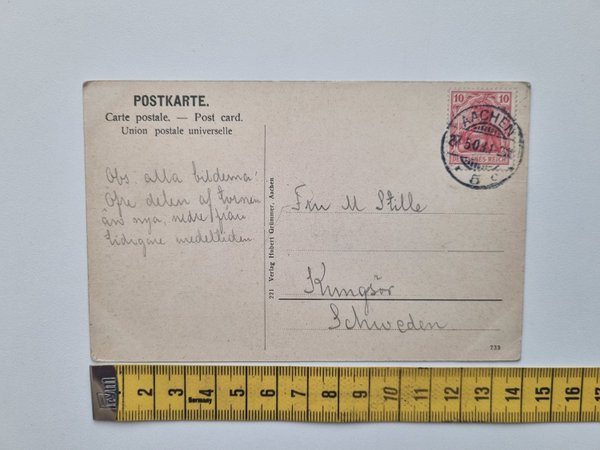 POSTKARTE.
Carte postale. — Post card.
Union postale universelle
10 10
AACHEN
5 c
DEUTSCHES REICH
Obs. alla bilderna!
Öfre delen af tornen
än nya, nedre från
tidigare medeltiden
221 Verlag Hubert Grümmer, Aachen
Fru M Stille
Kungsör
Schweden
239
2 3 4 5 6 7 8 9 10 11 12 13 14 15 16 17
Germany